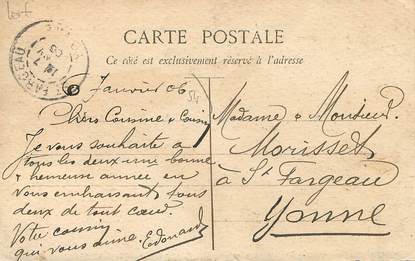 CARTE POSTALE
Ce côté est exclusivement réservé à l'adresse
FARGEAU
Janvier 06
Chers Cousine & Cousin
Je vous souhaite à
tous les deux une bonne
& heureuse année en
vous embrassant tous
deux de tout cœur.
Votre cousin
qui vous aime. Edouard
Madame & Monsieur
Morisset
à St Fargeau
Yonne